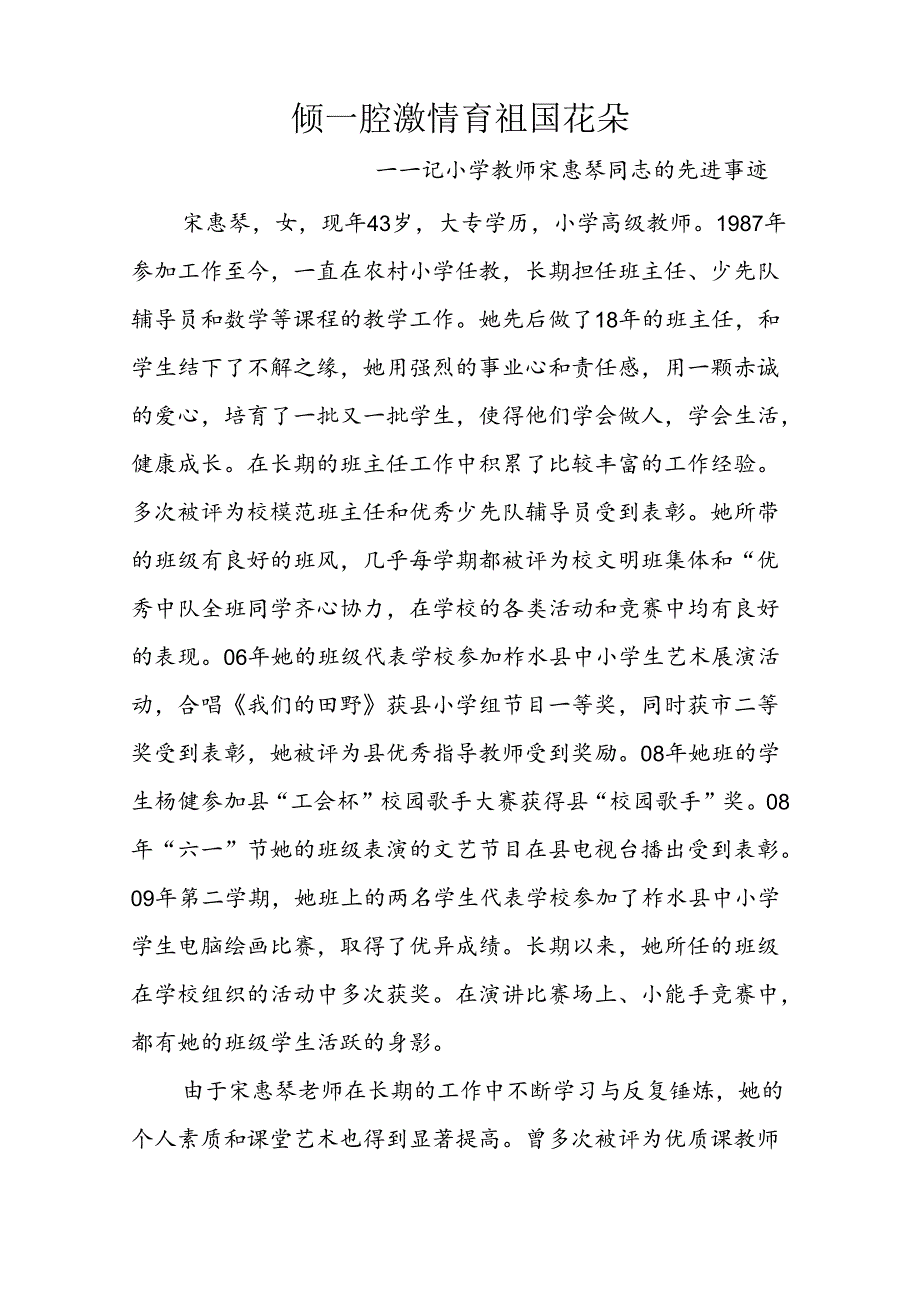 倾一腔激情育祖国花朵
一一记小学教师宋惠琴同志的先进事迹
宋惠琴，女，现年43岁，大专学历，小学高级教师。1987年
参加工作至今，一直在农村小学任教，长期担任班主任、少先队
辅导员和数学等课程的教学工作。她先后做了18年的班主任，和
学生结下了不解之缘，她用强烈的事业心和责任感，用一颗赤诚
的爱心，培育了一批又一批学生，使得他们学会做人，学会生活，
健康成长。在长期的班主任工作中积累了比较丰富的工作经验。
多次被评为校模范班主任和优秀少先队辅导员受到表彰。她所带
的班级有良好的班风，几乎每学期都被评为校文明班集体和“优
秀中队全班同学齐心协力，在学校的各类活动和竞赛中均有良好
的表现。06年她的班级代表学校参加柞水县中小学生艺术展演活
动，合唱《我们的田野》获县小学组节目一等奖，同时获市二等
奖受到表彰，她被评为县优秀指导教师受到奖励。08年她班的学
生杨健参加县“工会杯”校园歌手大赛获得县“校园歌手”奖。08
年“六一”节她的班级表演的文艺节目在县电视台播出受到表彰。
09年第二学期，她班上的两名学生代表学校参加了柞水县中小学
学生电脑绘画比赛，取得了优异成绩。长期以来，她所任的班级
在学校组织的活动中多次获奖。在演讲比赛场上、小能手竞赛中，
都有她的班级学生活跃的身影。
由于宋惠琴老师在长期的工作中不断学习与反复锤炼，她的
个人素质和课堂艺术也得到显著提高。曾多次被评为优质课教师